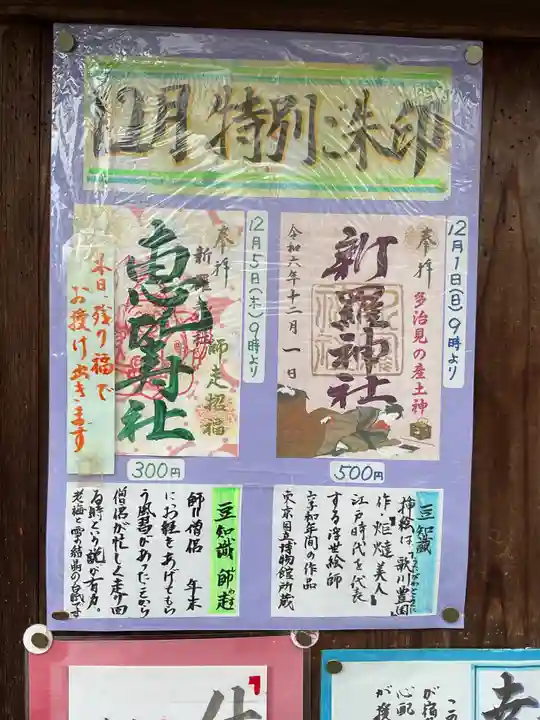 12月特別洙印
12月1日(日)9時より
奉拝
多治見の産土神
新羅神社
令和六年十二月一日
500円
豆知識
挿絵は、歌川豊国
作・炬燵美人
江戸時代を代表
する浮世絵師
文字和年間の作品
東京国立博物館所蔵
12月5日(木)9時より
奉拝
新羅
恵比寿社
師走招福
本日、残り福で
お授け出きます
300円
豆知識 師走
師=僧侶 年末
にお経をあげてもら
う風習があったことから
僧侶が忙しく走り回
る時という説が有力。
老梅と雪の結晶の台紙です